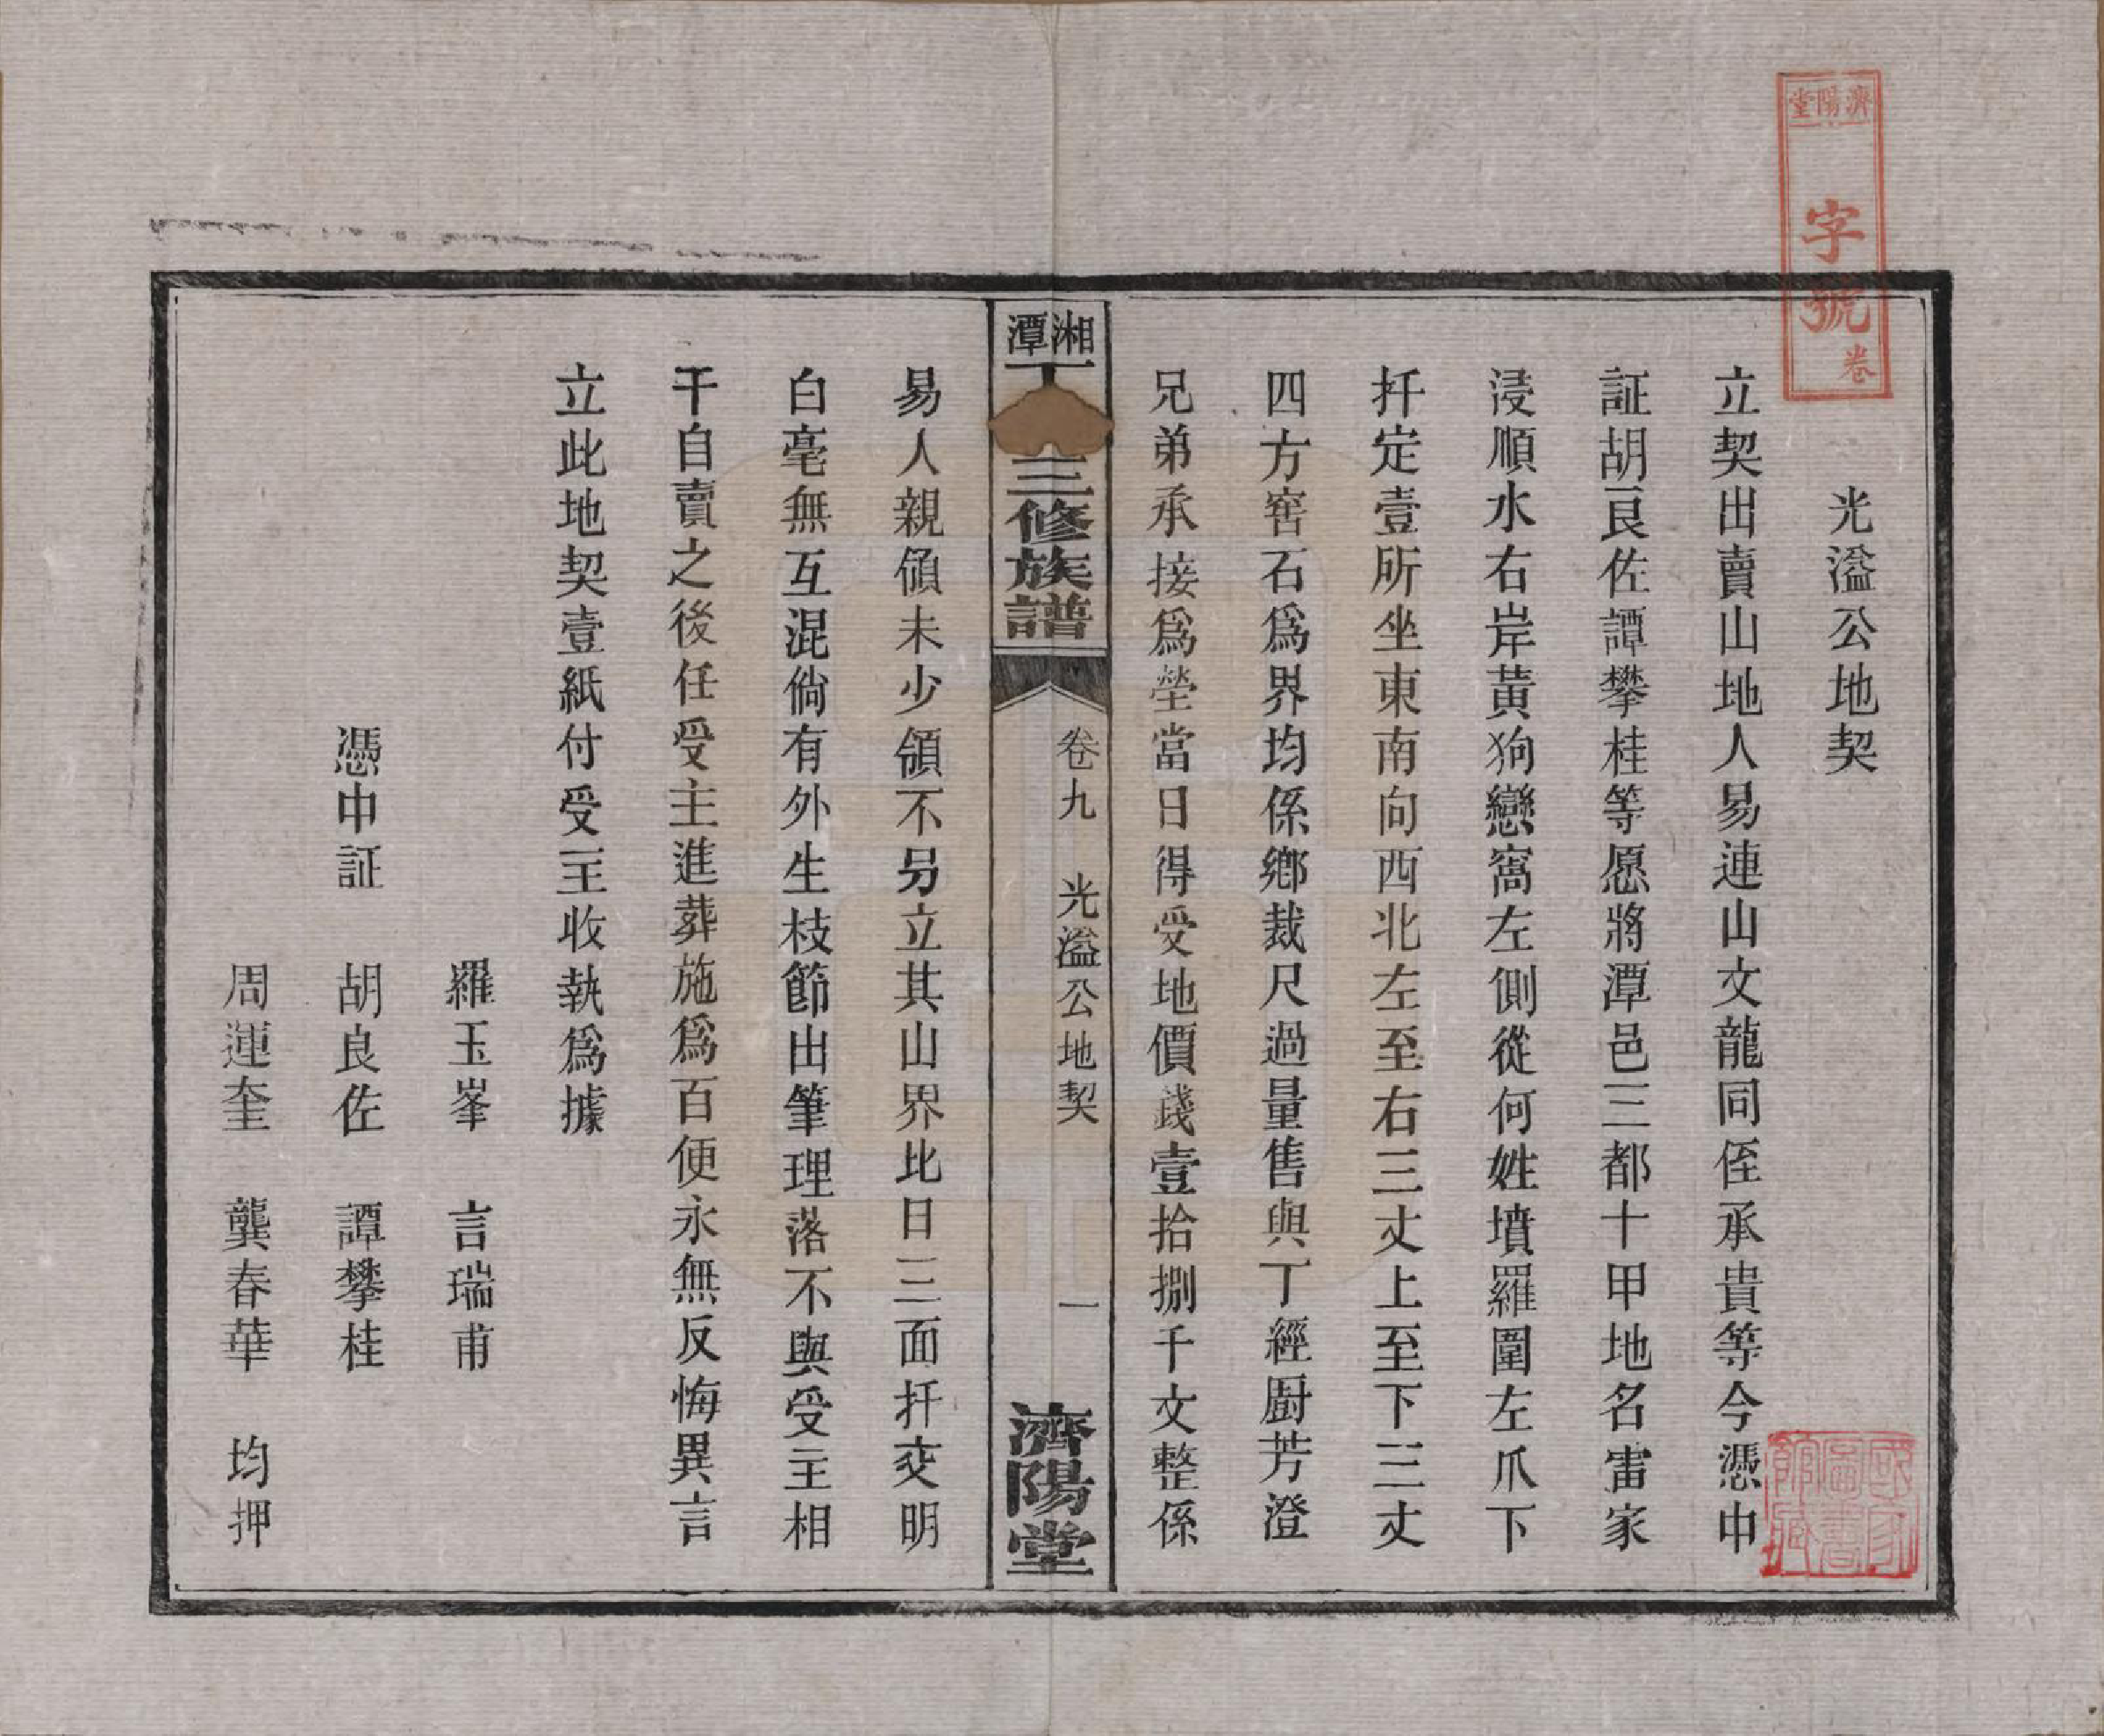 濟陽堂
字號
卷
光溢公地契
立契出賣山地人易連山文龍同侄承貴等今憑中
証胡良佐譚攀桂等愿將潭邑三都十甲地名雷家
浸順水右岸黃狗戀窩左側從何姓墳羅圍左爪下
扦定壹所坐東南向西北左至右三丈上至下三丈
四方窖石爲界均係鄉裁尺過量售與丁經厨芳澄
兄弟承接爲塋當日得受地價錢壹拾捌千文整係
湘潭丁
三修族譜
卷九 光溢公地契 一
濟陽堂
易人親領未少領不另立其山界比日三面扦交明
白毫無互混倘有外生枝節出筆理落不與受主相
干自賣之後任受主進葬施爲百便永無反悔異言
立此地契壹紙付受主收執爲據
羅玉峯 言瑞甫
憑中証 胡良佐 譚攀桂
周運奎 龔春華 均押
國家圖書館藏